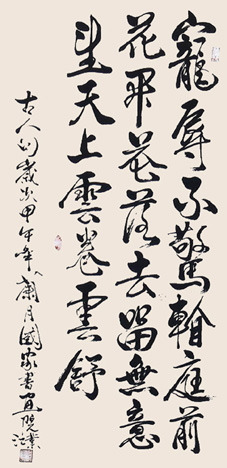 寵辱不驚看庭前
花開花落去留無意
望天上雲卷雲舒
古人句歲次甲午年蘭月國家書畫院